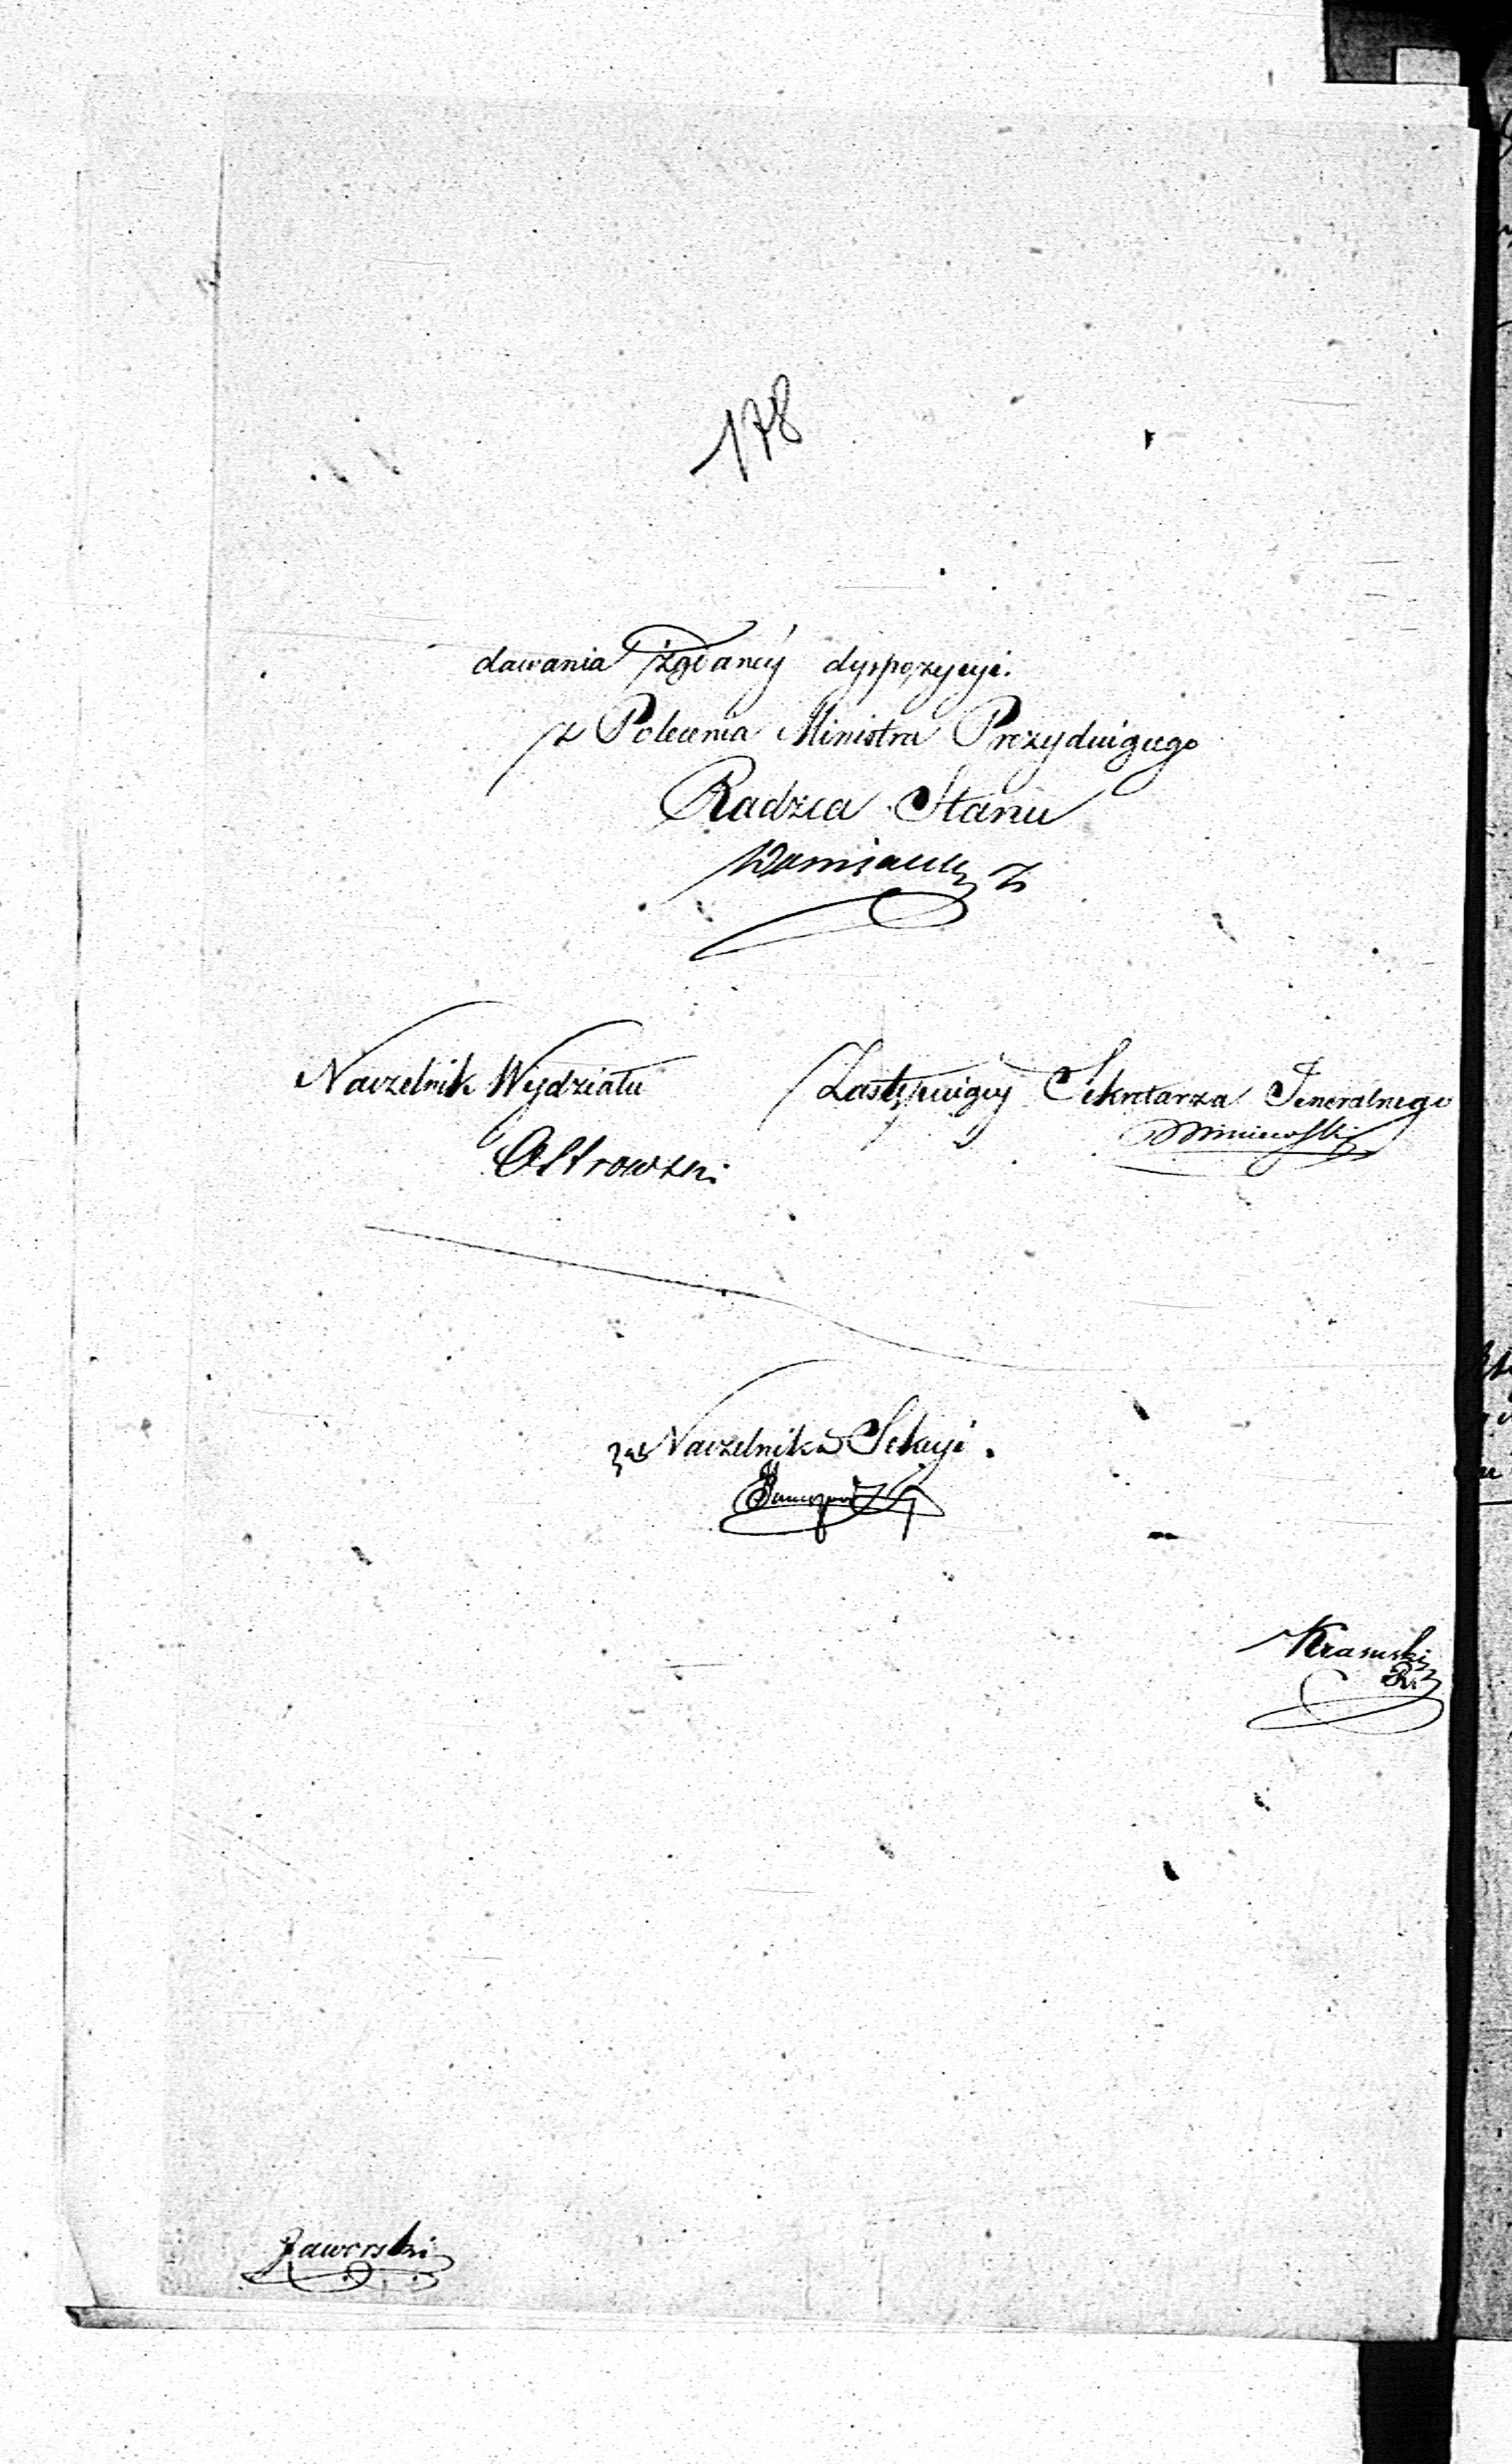 178
dawania żądaney dyspozycyi.
z Polecenia Ministra Prezyduiącego
Radzca Stanu
Naczelnik Wydziału
Ostrowski
Zastępuiący Sekretarza Jeneralnego
za Naczelnika Sekcyi.
Krasuski
Jaworski